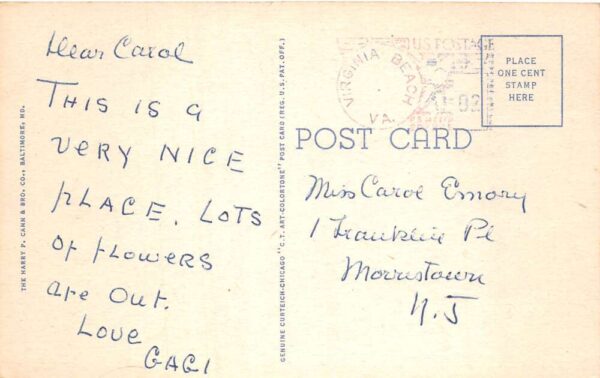 Dear Carol
THIS IS a
VERY NICE
PLACE. LOTS
OF FLOWERS
are OUT.
LOVE
GAGI
THE HARRY P. CANN & BRO. CO., BALTIMORE, MD.
GENUINE CURTEICH-CHICAGO "C.T. ART-COLORTONE" POST CARD (REG. U.S. PAT. OFF.)
VIRGINIA BEACH
VA.
U.S. POSTAGE
PLACE
ONE CENT
STAMP
HERE
POST CARD
Miss Carol Emory
1 Franklin Pl
Morristown
N.J